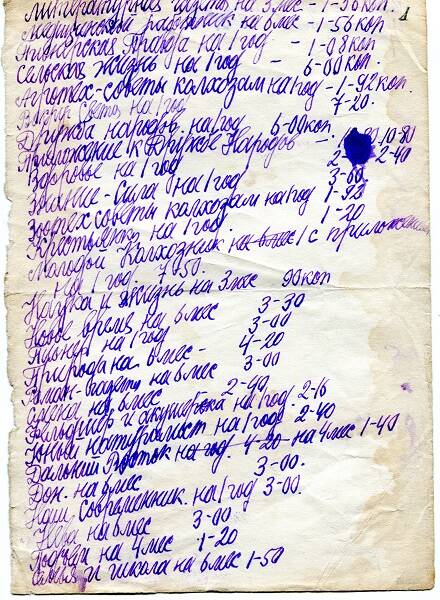 Литературная газета на 3 мес - 1-56 коп.
Медицинский работник на 6 мес - 1-56 коп
Пионерская Правда на 1 год - 1-08 коп
Сельская жизнь на 1 год - 6-00 коп.
Агротех-советы колхозам на год - 1-92 коп.
Вокруг Света на 1 год 7-20.
Дружба народов. на 1 год 6-00 коп.
Приложение к Дружбе Народов - 10-80
Здоровье на 1 год 2-40
Знание-Сила на 1 год 3-60
Зоотех советы колхозам на 1 год 1-92
Крестьянка на 1 год. 1-20
Молодой Колхозник на 6 мес/с приложением
на 1 год. 7-50.
Наука и жизнь на 3 мес 90 коп
Новое время на 6 мес 3-30
Пионер на 1 год 3-00
Природа на 6 мес - 4-20
Роман-Газета на 6 мес 3-00
Смена на 6 мес 2-
Фельдшер и акушерка на 1 год 2-16
Юный натуралист на 1 год 2-40
Дальний Восток на год. 4-20 - на 4 мес 1-40
Дон. на 6 мес 3-00.
Наш Современник. на 1 год 3-00.
Нева на 6 мес 3-00
Подъем на 4 мес 1-20
Семья и школа на 6 мес 1-50